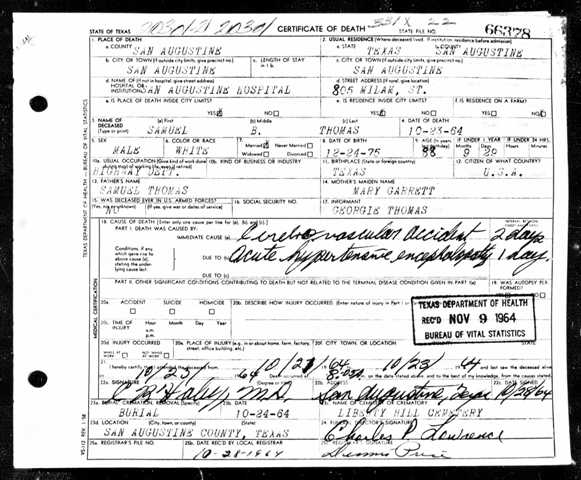 STATE OF TEXAS CERTIFICATE OF DEATH STATE FILE NO. 66378
1. PLACE OF DEATH 2. USUAL RESIDENCE (Where deceased lived. If institution: residence before admission)
a. COUNTY a. STATE b. COUNTY
SAN AUGUSTINE TEXAS SAN AUGUSTINE
b. CITY OR TOWN (If outside city limits, give precinct no.) c. LENGTH OF STAY in 1 b c. CITY OR TOWN (If outside city limits, give precinct no.)
SAN AUGUSTINE SAN AUGUSTINE
d. NAME OF (If not in hospital, give street address) HOSPITAL OR INSTITUTION d. STREET ADDRESS (If rural, give location)
SAN AUGUSTINE HOSPITAL 805 MILAM, ST.
e. IS PLACE OF DEATH INSIDE CITY LIMITS? e. IS RESIDENCE INSIDE CITY LIMITS? f. IS RESIDENCE ON A FARM?
YES NO YES NO YES NO
3. NAME OF DECEASED (Type or print) (a) First (b) Middle (c) Last 4. DATE OF DEATH
SAMUEL B. THOMAS 10-23-64
5. SEX 6. COLOR OR RACE 7. Married Never Married Widowed Divorced 8. DATE OF BIRTH 9. AGE IF UNDER 1 YEAR IF UNDER 24 HRS.
MALE WHITE 12-24-75 88 9 29
10a. USUAL OCCUPATION (Give kind of work done during most of working life, even if retired) 10b. KIND OF BUSINESS OR INDUSTRY 11. BIRTHPLACE (State or foreign country) 12. CITIZEN OF WHAT COUNTRY?
HIGHWAY DEPT. TEXAS U.S.A.
13. FATHER'S NAME 14. MOTHER'S MAIDEN NAME
SAMUEL THOMAS MARY GARRETT
15. WAS DECEASED EVER IN U.S. ARMED FORCES? 16. SOCIAL SECURITY NO. 17. INFORMANT
(Yes, no, or unknown) (If yes, give war or dates of service)
NO GEORGIE THOMAS
18. CAUSE OF DEATH [Enter only one cause per line for (a), (b), and (c).]
PART I. DEATH WAS CAUSED BY:
IMMEDIATE CAUSE (a) Cerebro vascular accident 2 days
Conditions, if any, which gave rise to above cause (a), stating the underlying cause last.
DUE TO (b) Acute hypertensive encephalopathy 1 day.
DUE TO (c)
PART II. OTHER SIGNIFICANT CONDITIONS CONTRIBUTING TO DEATH BUT NOT RELATED TO THE TERMINAL DISEASE CONDITION GIVEN IN PART I(a) 19. WAS AUTOPSY PERFORMED?
20a. ACCIDENT SUICIDE HOMICIDE 20b. DESCRIBE HOW INJURY OCCURRED. (Enter nature of injury in Part I or
20c. TIME OF INJURY Hour Month Day Year
a.m.
p.m.
TEXAS DEPARTMENT OF HEALTH
REC'D NOV 9 1964
BUREAU OF VITAL STATISTICS
20d. INJURY OCCURRED 20e. PLACE OF INJURY (e.g., in or about home, farm, factory, street, office building, etc.) 20f. CITY, TOWN, OR LOCATION
WHILE AT WORK NOT WHILE AT WORK
22a. SIGNATURE (Degree or title) 22b. ADDRESS 22c. DATE SIGNED
M.D. San Augustine, Texas 10/28/64
23a. BURIAL, CREMATION, REMOVAL (Specify) 23b. DATE 23c. NAME OF CEMETERY OR CREMATORY
BURIAL 10-24-64 LIBERTY HILL CEMETERY
23d. LOCATION (City, town, or county) (State) 24. FUNERAL DIRECTOR'S SIGNATURE
SAN AUGUSTINE COUNTY, TEXAS Charles P. Lawrence
25a. REGISTRAR'S FILE NO. 25b. DATE REC'D BY LOCAL REGISTRAR 25c. REGISTRAR'S SIGNATURE
10-28-1964
TEXAS DEPARTMENT OF HEALTH - BUREAU OF VITAL STATISTICS
MEDICAL CERTIFICATION